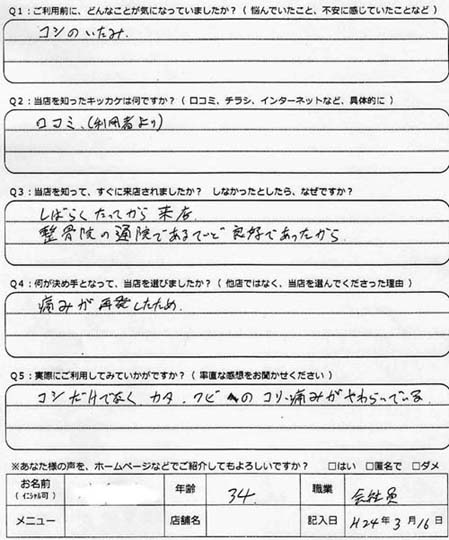 Q1：ご利用前に、どんなことが気になっていましたか？（ 悩んでいたこと、不安に感じていたことなど ）
コシのいたみ.
Q2：当店を知ったキッカケは何ですか？（ 口コミ、チラシ、インターネットなど、具体的に ）
口コミ、(利用者より)
Q3：当店を知って、すぐに来店されましたか？ しなかったとしたら、なぜですか？
しばらくたってから 来店.
整骨院の通院であるていど 良好であったから.
Q4：何が決め手となって、当店を選びましたか？（ 他店ではなく、当店を選んでくださった理由 ）
痛みが 再発したため.
Q5：実際にご利用してみていかがですか？（ 率直な感想をお聞かせください ）
コシだけでなく、カタ、クビへのコリ、痛みがやわらいでいる.
※あなた様の声を、ホームページなどでご紹介してもよろしいですか？ □はい □匿名で □ダメ
お名前 年齢 34. 職業 会社員
（ ｲﾆｼｬﾙ可 ）
メニュー 店舗名 記入日 H24年 3月 16日